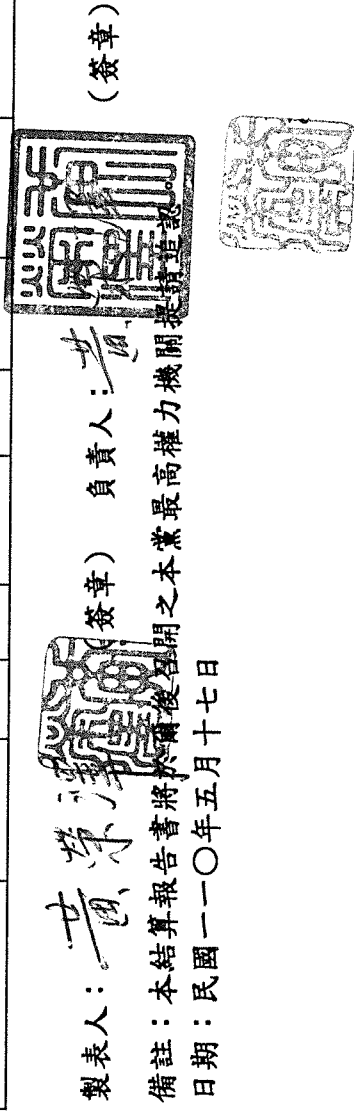 製表人：黃榮 （簽章） 負責人：黃 （簽章）
備註：本結算報告書將於爾後召開之本黨最高權力機關提請追認。
日期：民國一一〇年五月十七日